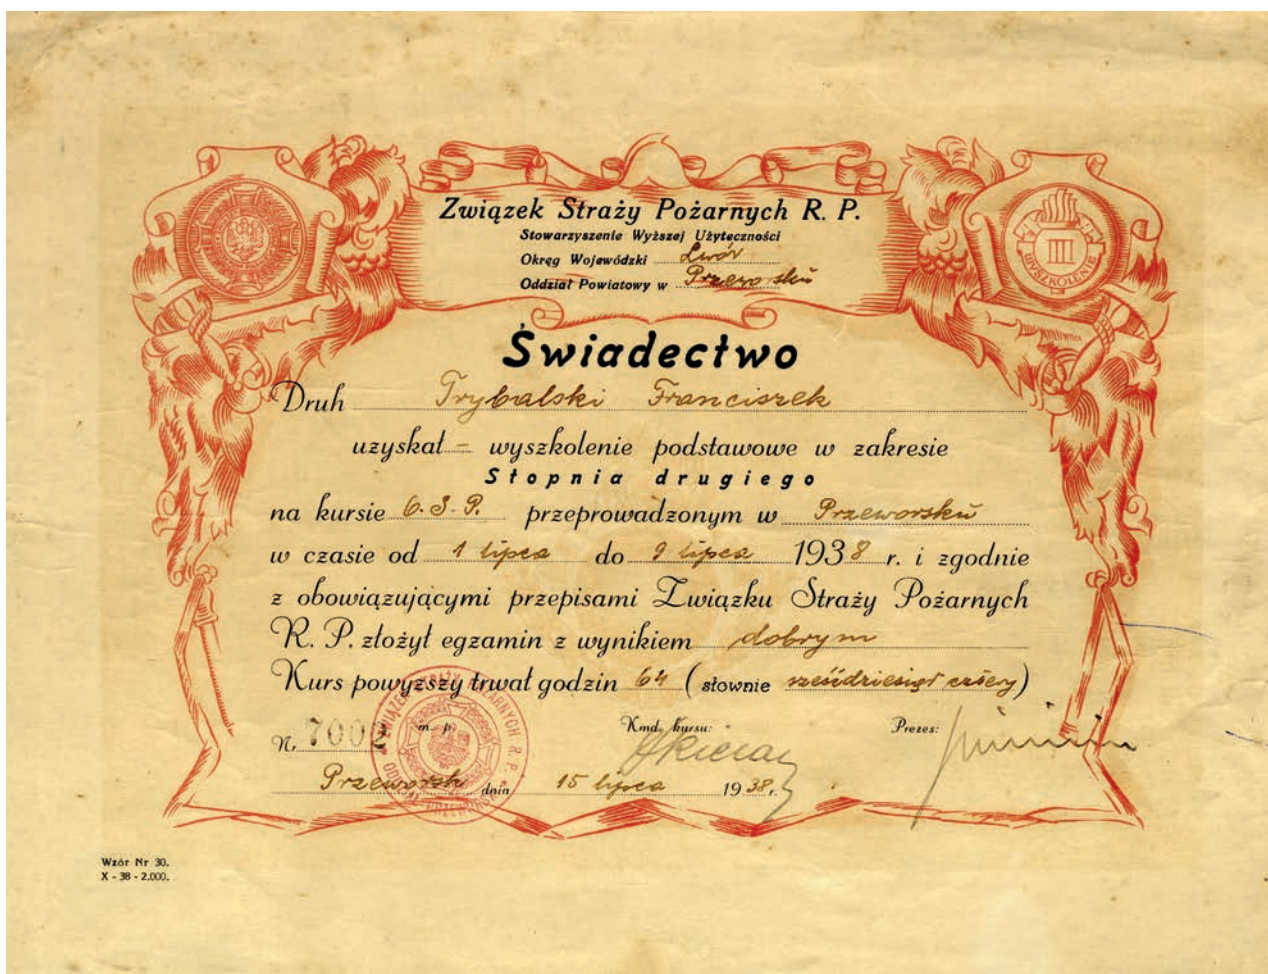 Związek Straży Pożarnych R. P.
Stowarzyszenie Wyższej Użyteczności
Okręg Wojewódzki Lwów
Oddział Powiatowy w Przeworsku
III
WYSZKOLENIE
Świadectwo
Druh Trybalski Franciszek
uzyskał = wyszkolenie podstawowe w zakresie
Stopnia drugiego
na kursie O. S. P. przeprowadzonym w Przeworsku
w czasie od 1 lipca do 9 lipca 1938 r. i zgodnie
z obowiązującymi przepisami Związku Straży Pożarnych
R. P. złożył egzamin z wynikiem dobrym
Kurs powyższy trwał godzin 64 (słownie sześćdziesiąt cztery)
Nr 7002 m. p. Kmd. kursu: Prezes:
ZWIĄZEK STRAŻY POŻARNYCH R. P.
Przeworsk dnia 15 lipca 1938 r.
Wzór Nr 30.
X - 38 - 2.000.